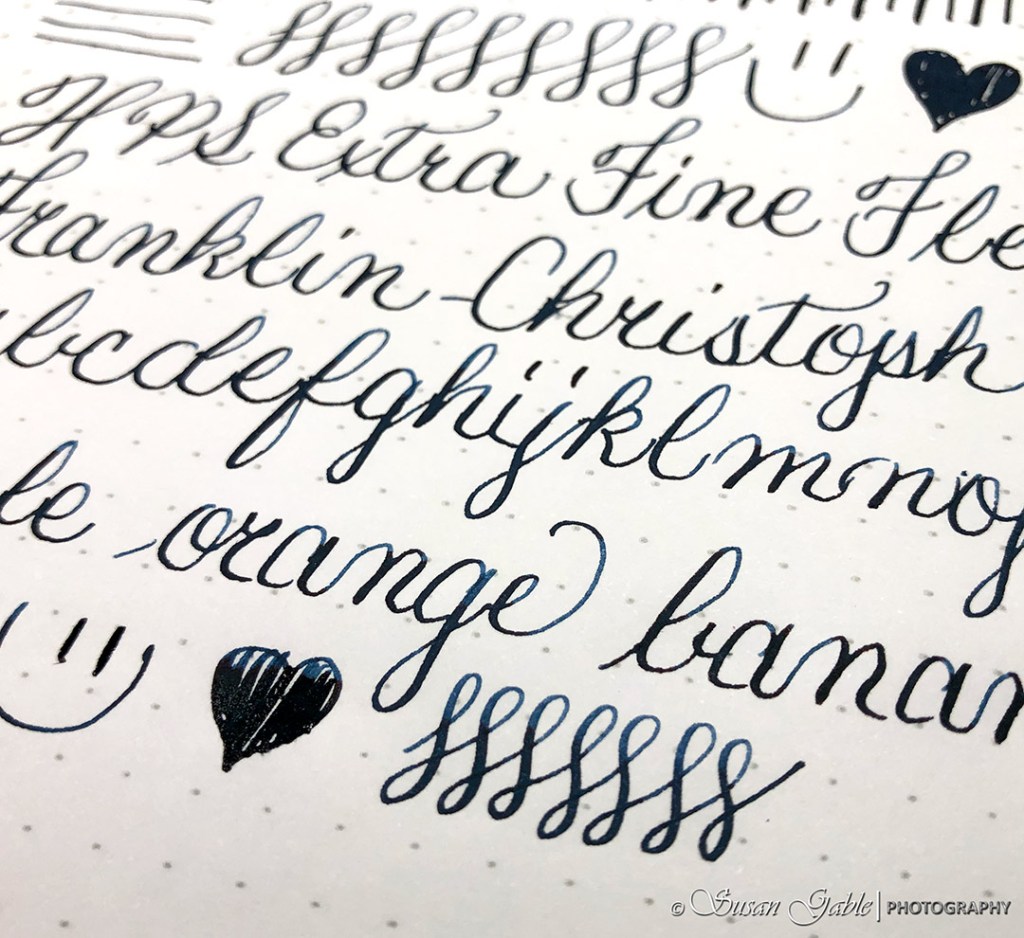 HPS Extra Fine Fle
Franklin-Christoph
bcdefghijklmnop
le orange banan
© Susan Gable | PHOTOGRAPHY